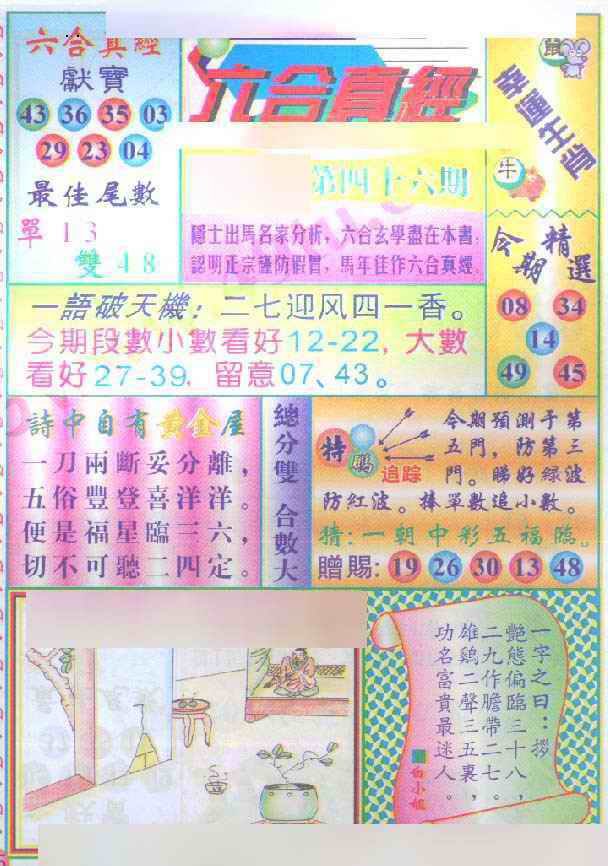 六合真經
獻寶
43 36 35 03
29 23 04
最佳尾數
單 1 3
雙 4 8
六合真經
第四十六期
隱士出馬名家分析，六合玄學盡在本書；
認明正宗謹防假冒，馬年佳作六合真經。
鼠
幸運生肖
牛
今期精選
08 34
14
49 45
一語破天機：二七迎风四一香。
今期段數小數看好12-22，大數
看好27-39，留意07、43。
詩中自有黃金屋
一刀兩斷妥分離，
五俗豐登喜洋洋。
便是福星臨三六，
切不可聽二四定。
總分雙 合數大
特碼
追踪
今期預測于第
五門，防第三
門。睇好緑波
防紅波。捧單數追小數。
猜：一朝中彩五福臨。
贈賜：19 26 30 13 48
一字之曰：拶
艷態偏臨三十八，
二九作膽帶二七。
雄鷄二聲三五裏，
功名富貴最迷人。
白小姐